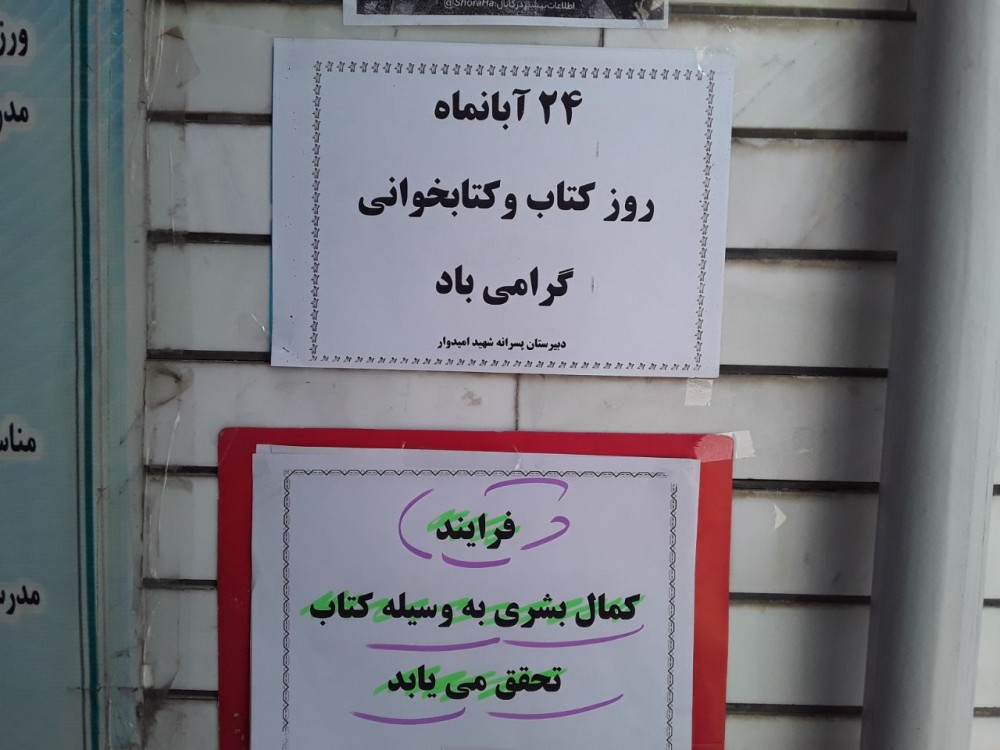 اطلاعات بیشتر در کانال: @ShoraHa
۲۴ آبانماه
روز کتاب وکتابخوانی
گرامی باد
دبیرستان پسرانه شهید امیدوار
فرایند
کمال بشری به وسیله کتاب
تحقق می یابد